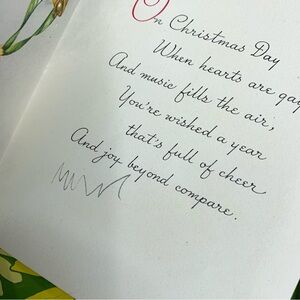 On Christmas Day
When hearts are gay
And music fills the air,
You're wished a year
that's full of cheer
And joy beyond compare.